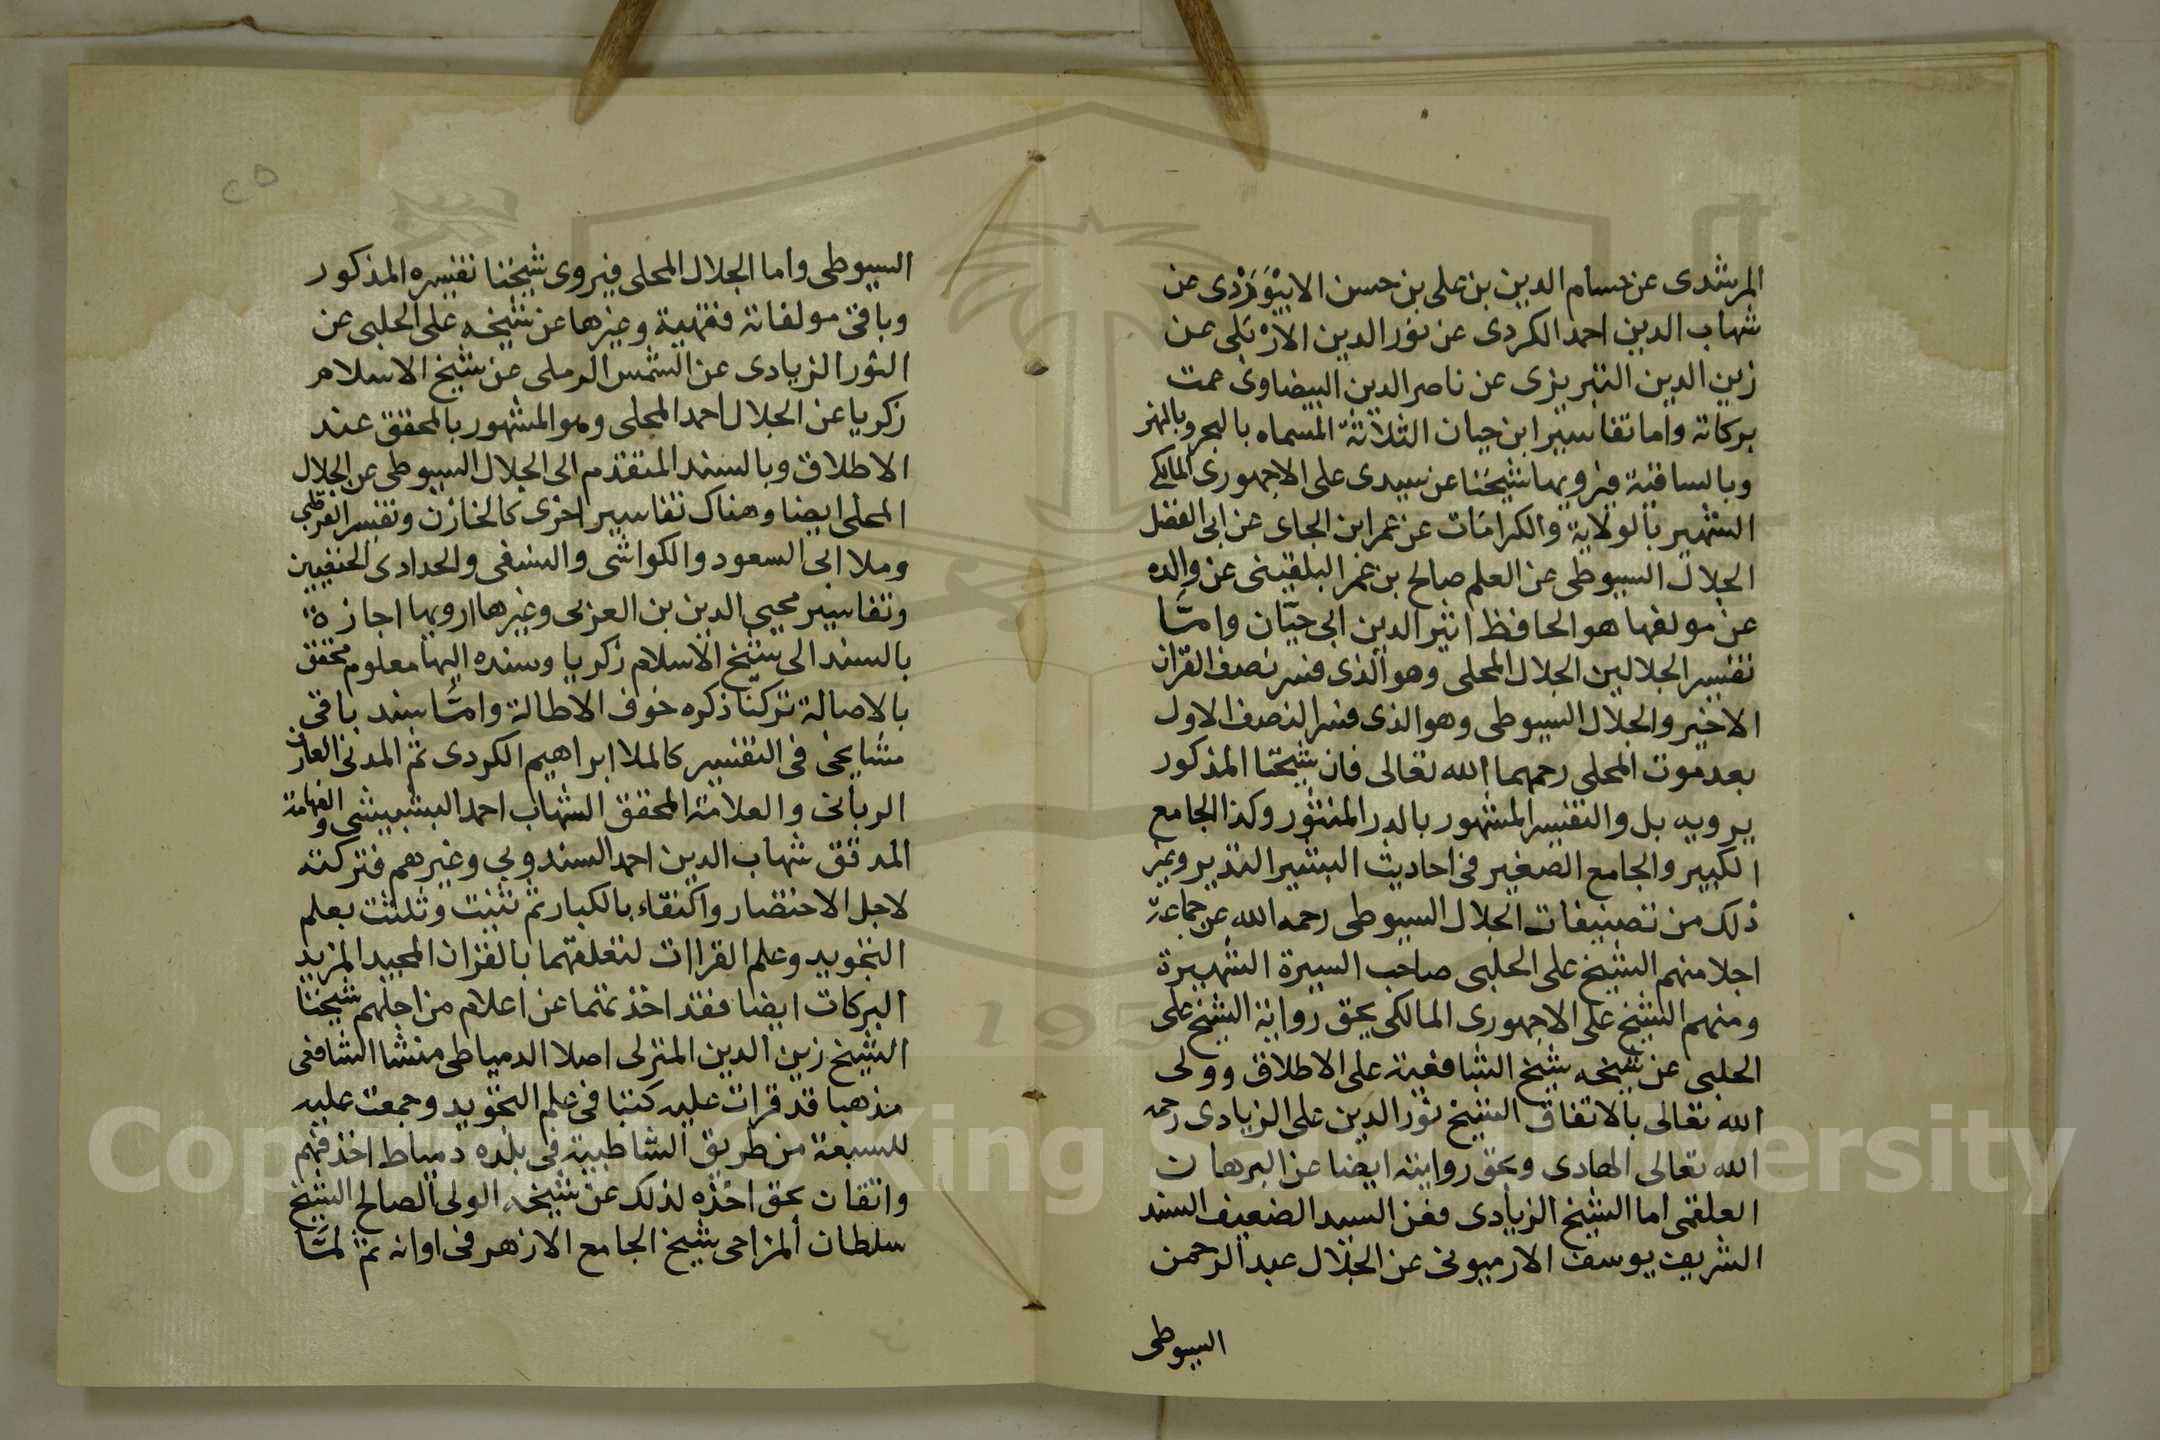 المرشدى عن حسام الدين بن على بن حسن الابيوردى عن
شهاب الدين احمد الكردى عن نور الدين الاردبلى عن
زين الدين التبريزى عن ناصر الدين البيضاوى عمت
بركاته واما تفاسير ابن حيان الثلاثة المسماه بالبحر وبالنهر
وبالساقية فيرويها شيخنا عن سيدى على الاجهورى المالكى
الشهير بالولاية والكرامات عن عمر ابن الجاى عن ابى الفضل
الجلال السيوطى عن العلم صالح بن عمر البلقينى عن والده
عن مولفها هو الحافظ اثير الدين ابى حيّان وامّا
تفسير الجلالين الجلال المحلى وهو الذى فسر نصف القران
الاخير والجلال السيوطى وهو الذى فسر النصف الاول
بعد موت المحلى رحمهما الله تعالى فان شيخنا المذكور
يرويه بل والتفسير المشهور بالدر المنثور وكذا الجامع
الكبير والجامع الصغير فى احاديث البشير النذير وغير
ذلك من تصنيفات الجلال السيوطى رحمه الله عن جماعة
اجلا منهم الشيخ على الحلبى صاحب السيرة الشهيرة
ومنهم الشيخ على الاجهورى المالكى بحق رواية الشيخ على
الحلبى عن شيخه شيخ الشافعية على الاطلاق وولى
الله تعالى بالاتفاق الشيخ نور الدين على الزيادى رحمه
الله تعالى الهادى وبحق روايته ايضا عن البرهان
العلقمى اما الشيخ الزيادى فعن السيد الضعيف السند
الشريف يوسف الارميونى عن الجلال عبد الرحمن
السيوطى
٢٥
السيوطى واما الجلال المحلى فيروى شيخنا تفسيره المذكور
وباقى مولفاته فقهية وغيرها عن شيخه على الحلبى عن
النور الزيادى عن الشمس الرملى عن شيخ الاسلام
زكريا عن الجلال احمد المحلى وهو المشهور بالمحقق عند
الاطلاق وبالسند المتقدم الى الجلال السيوطى عن الجلال
المحلى ايضا وهناك تفاسير اخرى كالخازن وتفسير القرطبى
وملا ابى السعود والكواشى والنسفى والحدادى الحنفيين
وتفاسير محيى الدين بن العزبى وغيرها ارويها اجازة
بالسند الى شيخ الاسلام زكريا وسنده اليها معلوم محقق
بالاصالة تركنا ذكره خوف الاطالة وامّا سند باقى
مشايخى فى التفسير كالملا ابراهيم الكردى ثم المدنى العارف
الربانى والعلامة المحقق الشهاب احمد البشبيشى والفهامة
المدقق شهاب الدين احمد السندوبى وغيرهم فتركته
لاجل الاختصار واكتفاء بالكبار ثم ثنيت وثلثت بعلم
التجويد وعلم القراات لتعلقهما بالقران المجيد المزيد
البركات ايضا فقد اخذتهما عن اعلام من اجلهم شيخنا
الشيخ زين الدين المنزلى اصلا الدمياطى منشا الشافعى
مذهبا قد قرات عليه كتبا فى علم التجويد وجمعت عليه
للسبعة من طريق الشاطبية فى بلده دمياط اخذ فهم
واتقان بحق اخذه لذلك عن شيخه الولى الصالح الشيخ
سلطان المزاحى شيخ الجامع الازهر فى اوانه ثم لمّا
Copyright © King Saud University
1957